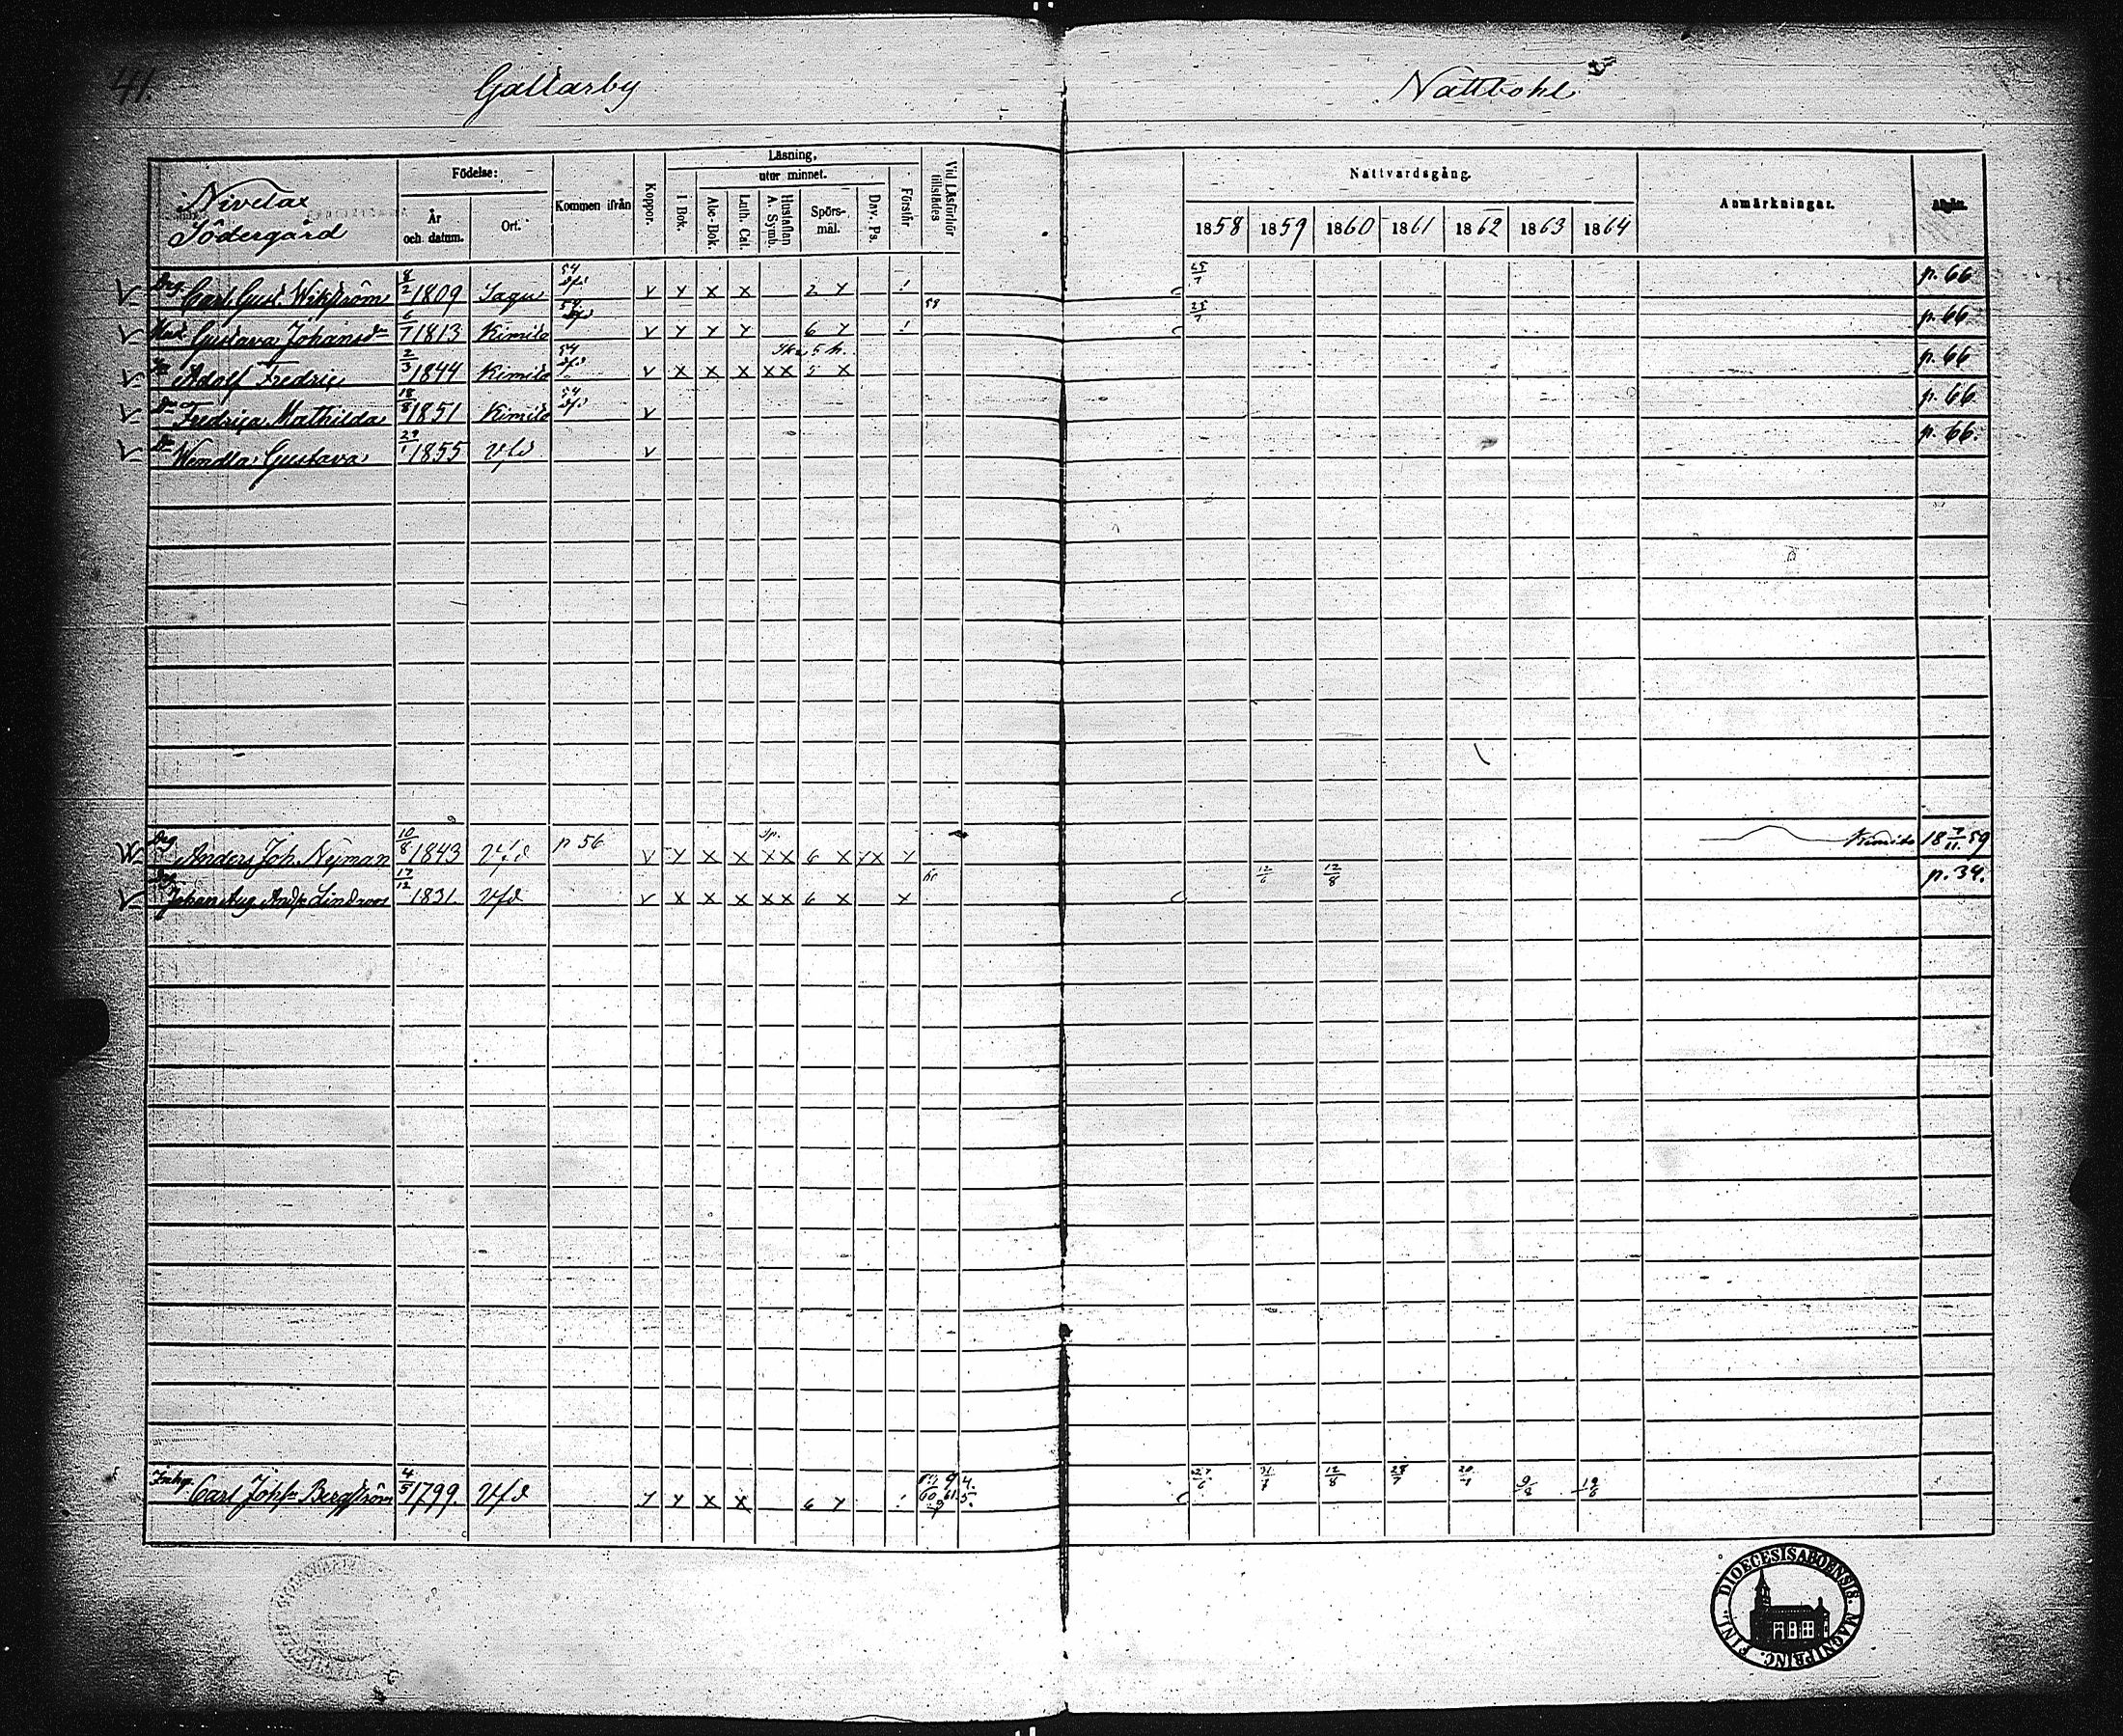 41.
Gallarby
Nattbohl
Nivelax
Södergård
Födelse:
År
och datum.
Ort.
Kommen ifrån
Koppor.
Läsning,
utur minnet.
I Bok.
Abc-Bok.
Luth. Cat.
Hustaflan
A. Symb.
Spörs-
mål.
Dav. Ps.
Förstår
Vid Läsförhör
tillstädes
Nattvardsgång.
1858 1859 1860 1861 1862 1863 1864
Anmärkningar.
V Drg. Carl Gust. Wikström 8/2 1809 Sagu 54 v y x x 2 y ! 25/7 p. 66
V Gustava Johansdr 6/7 1813 Kimito 54 v y y y 6 y ! 58 25/7 p. 66
V Adolf Fredric 2/3 1844 Kimito 54 v x x x x x 5 x p. 66
V Dr Fredrica Mathilda 18/8 1851 Kimito 54 v p. 66
V Dr Wendla Gustava 29/1 1855 Vfd v p. 66.
Drg Anders Joh. Nyman 10/8 1843 Vfd p 56 v y x x x x 6 x y x y Kimito 18 7/11 59
V Drg Johan Aug. Lindroos 17/12 1831 Vfd v x x x x x 6 x x 60 12/6 12/8 p. 34.
Inhy. Carl Johs Bergström 4/5 1799. Vfd y y x x 6 y ! 60 61. 27/6 31/7 12/8 28/7 20/7 9/8 19/6
DIOECESIS ABOENSIS. MAGNI PRINC. FINL.